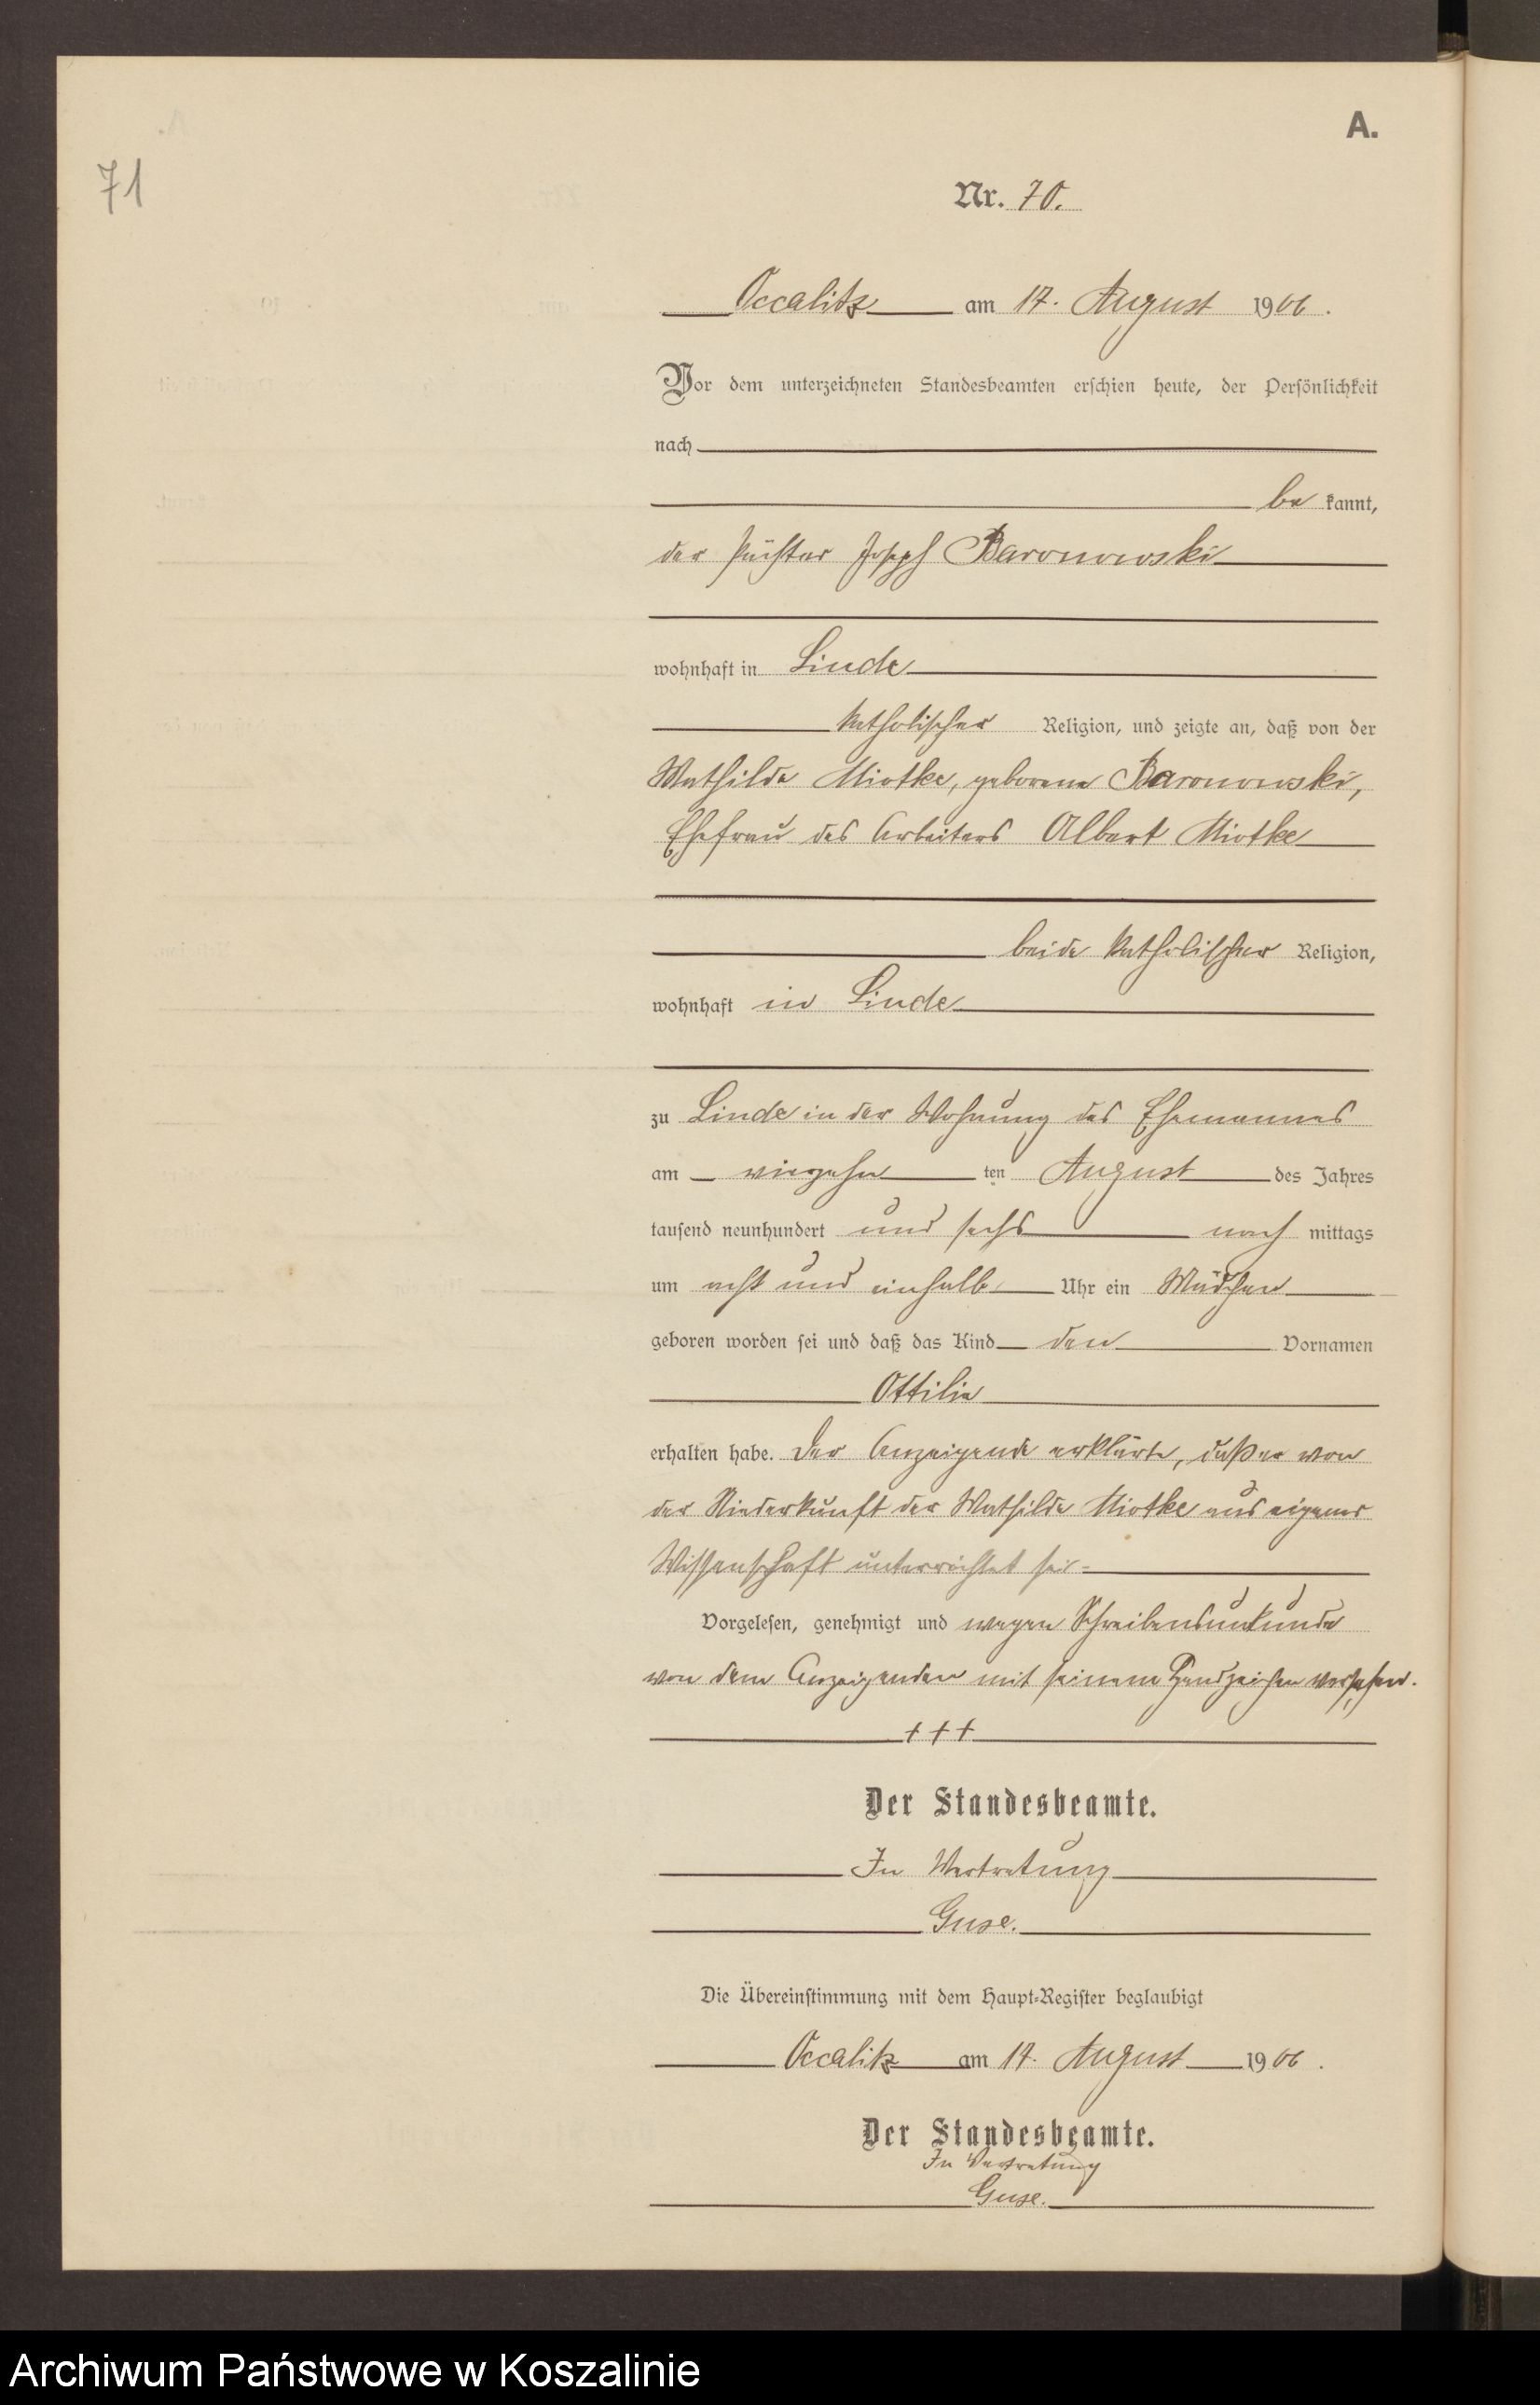 A.
71
Nr. 70.
Occalitz am 17. August 1906.
Vor dem unterzeichneten Standesbeamten erschien heute, der Persönlichkeit
nach
be kannt,
der Joseph Baronowski
wohnhaft in Linde
katholischer Religion, und zeigte an, daß von der
Mathilde Miotke, geborene Baronowski,
Ehefrau des Arbeiters Albert Miotke
beide katholischer Religion,
wohnhaft in Linde
zu Linde in der Wohnung des Ehemannes
am vierzehn ten August des Jahres
tausend neunhundert und sechs nach mittags
um acht und einhalb Uhr ein Mädchen
geboren worden sei und daß das Kind den Vornamen
Ottilie
erhalten habe. Der Anzeigende erklärte, daß er von
der Niederkunft der Mathilde Miotke aus eigener
Wissenschaft unterrichtet sei.
Vorgelesen, genehmigt und wegen Schreibensunkunde
von dem Anzeigenden mit seinem Handzeichen versehen.
+++
Der Standesbeamte.
In Vertretung
Guse.
Die Übereinstimmung mit dem Haupt-Register beglaubigt
Occalitz am 17. August 1906.
Der Standesbeamte.
In Vertretung
Guse.
Archiwum Państwowe w Koszalinie